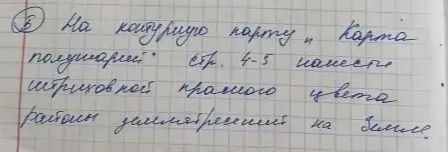 5 На контурную карту „Карта
полушарий" стр. 4-5 нанести
штриховкой красного цвета
районы землятресений на Земле.